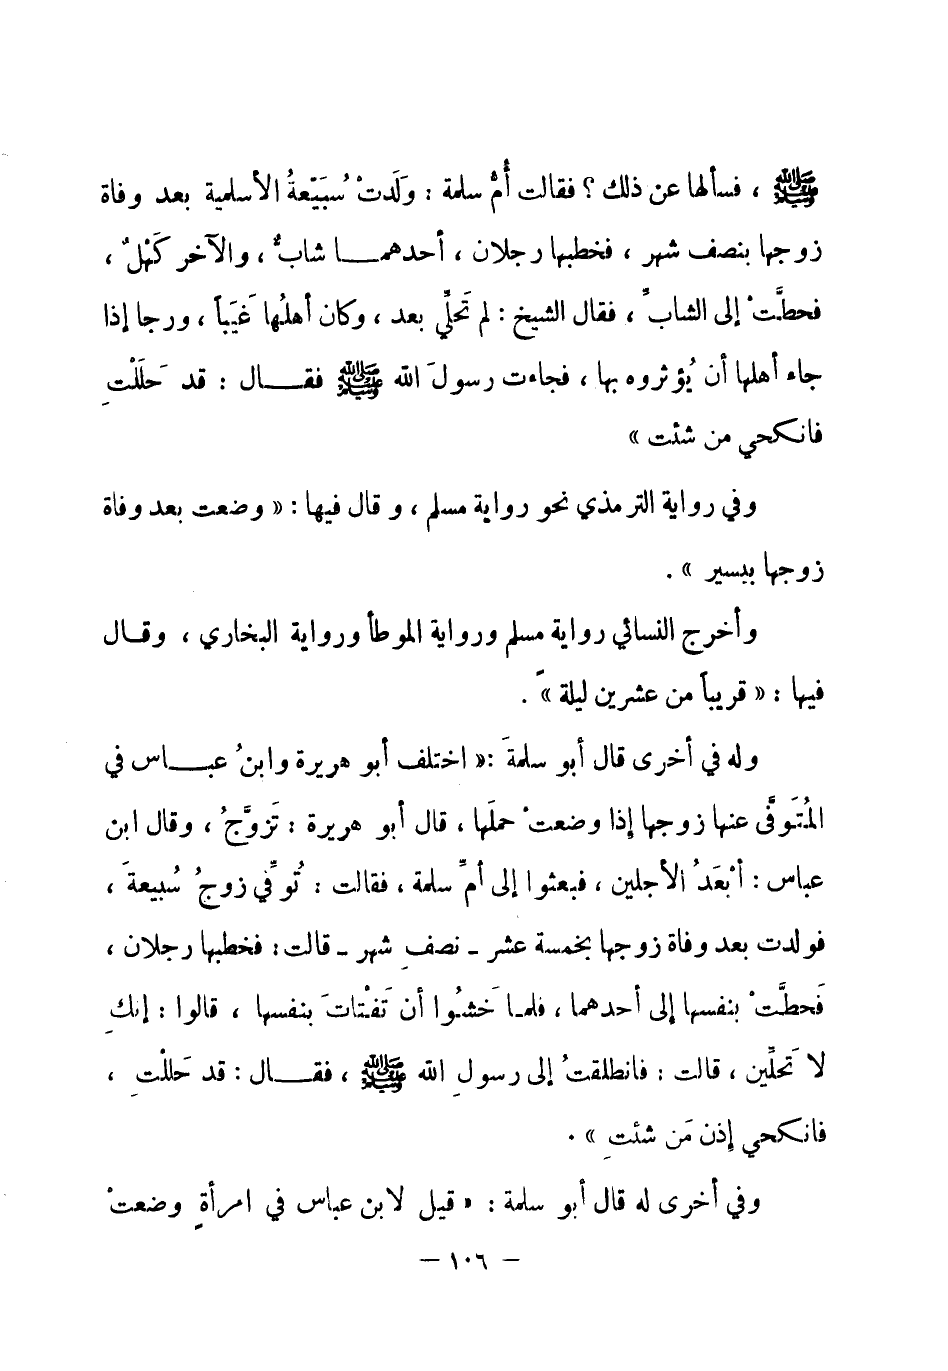 ﷺ ، فسألها عن ذلك ؟ فقالت أُمُّ سلمة : وَلَدتْ سُبَيْعةُ الأسلمية بعد وفاة
زوجها بنصف شهر ، فخطبها رجلان ، أحدهمـــا شابٌّ ، والآخر كَهْلٌ ،
فحطَّتْ إلى الشابِّ ، فقال الشيخ : لم تَحلِّي بعد ، وكان أهلُها غَيَباً ، ورجا إذا
جاء أهلها أن يُؤثروه بها ، فجاءت رسولَ الله ﷺ فقـــال : قد حَلَلْتِ
فانكحي من شئت »
وفي رواية الترمذي نحو رواية مسلم ، وقال فيها : « وضعت بعد وفاة
زوجها بيسير » .
وأخرج النسائي رواية مسلم ورواية الموطأ ورواية البخاري ، وقـال
فيها : « قريباً من عشرين ليلة » .
وله في أخرى قال أبو سلمةَ : « اختلف أبو هريرة وابنُ عبـــاس في
المُتَوفَّى عنها زوجها إذا وضعتْ حملَها ، قال أبو هريرة : تَزوَّجُ ، وقال ابن
عباس : أبْعَدُ الأجلين ، فبعثوا إلى أمِّ سلمة ، فقالت : تُوفِّي زوجُ سُبيعةَ ،
فولدت بعد وفاة زوجها بخمسة عشر ـ نصفِ شهر ـ قالت : فخطبها رجلان ،
فَحطَّتْ بنفسها إلى أحدهما ، فلمـا خَشُوا أن تَفْتاتَ بنفسها ، قالوا : إنكِ
لا تَحلِّين ، قالت : فانطلقتُ إلى رسولِ الله ﷺ ، فقـــال : قد حَللْتِ ،
فانكحي إذن مَن شئتِ » .
وفي أخرى له قال أبو سلمة : « قيل لابن عباس في امرأةٍ وضعتْ
— ١٠٦ —